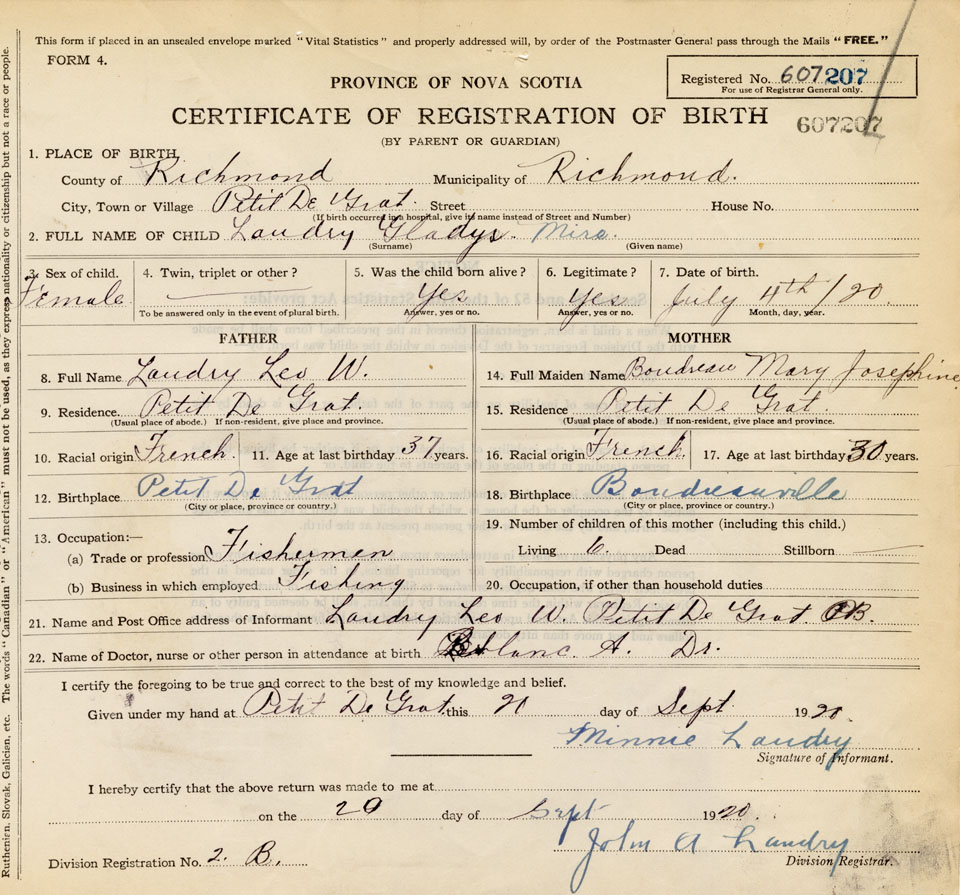 This form if placed in an unsealed envelope marked "Vital Statistics" and properly addressed will, by order of the Postmaster General pass through the Mails "FREE."
FORM 4.
Registered No. 607207
For use of Registrar General only.
PROVINCE OF NOVA SCOTIA
CERTIFICATE OF REGISTRATION OF BIRTH
607207
(BY PARENT OR GUARDIAN)
1. PLACE OF BIRTH
County of Richmond Municipality of Richmond.
City, Town or Village Petit De Grat. Street House No.
(If birth occurred in a hospital, give its name instead of Street and Number)
2. FULL NAME OF CHILD Landry Gladys.
(Surname) (Given name)
3. Sex of child. 4. Twin, triplet or other? 5. Was the child born alive? 6. Legitimate? 7. Date of birth.
Female Yes Yes July 4th/20.
To be answered only in the event of plural birth. Answer, yes or no. Answer, yes or no. Month, day, year.
FATHER MOTHER
8. Full Name Landry Leo W. 14. Full Maiden Name Boudreau Mary Josephine
9. Residence. Petit De Grat. 15. Residence Petit De Grat.
(Usual place of abode.) If non-resident, give place and province. (Usual place of abode.) If non-resident, give place and province.
10. Racial origin French. 11. Age at last birthday 37 years. 16. Racial origin French 17. Age at last birthday 30 years.
12. Birthplace Petit De Grat 18. Birthplace Boudreauville
(City or place, province or country.) (City or place, province or country.)
13. Occupation:— 19. Number of children of this mother (including this child.)
(a) Trade or profession Fishermen Living 6. Dead Stillborn
(b) Business in which employed Fishing 20. Occupation, if other than household duties
21. Name and Post Office address of Informant Landry Leo W. Petit De Grat CB.
22. Name of Doctor, nurse or other person in attendance at birth A. Dr.
I certify the foregoing to be true and correct to the best of my knowledge and belief.
Given under my hand at Petit De Grat. this day of Sept 1920.
Minnie Landry
Signature of Informant.
I hereby certify that the above return was made to me at
on the 20 day of Sept 1920.
John A Landry
Division Registration No. 2. B. Division Registrar.
Ruthenian, Slovak, Galician, etc. The words "Canadian" or "American" must not be used, as they express nationality or citizenship but not a race or people.